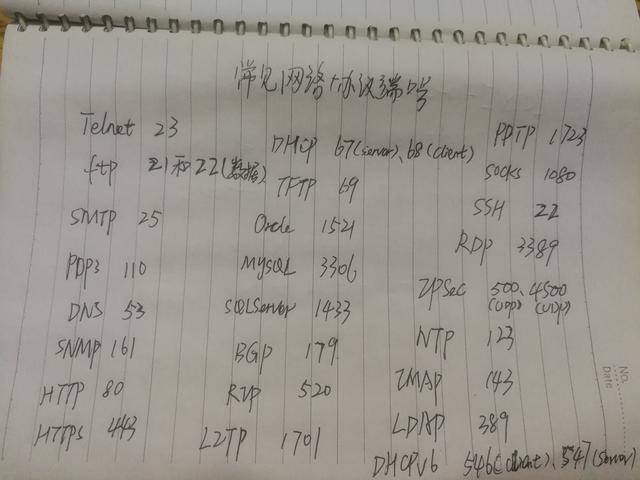 常见网络协议端口号
Telnet 23
ftp 21和22(数据)
SMTP 25
POP3 110
DNS 53
SNMP 161
HTTP 80
HTTPS 443
DHCP 67(server)、68(client)
TFTP 69
Oracle 1521
MySQL 3306
SQLServer 1433
BGP 179
RIP 520
L2TP 1701
PPTP 1723
Socks 1080
SSH 22
RDP 3389
IPSec 500、4500
(UDP) (UDP)
NTP 123
IMAP 143
LDAP 389
DHCPv6 546(client)、547(server)
No.
Date